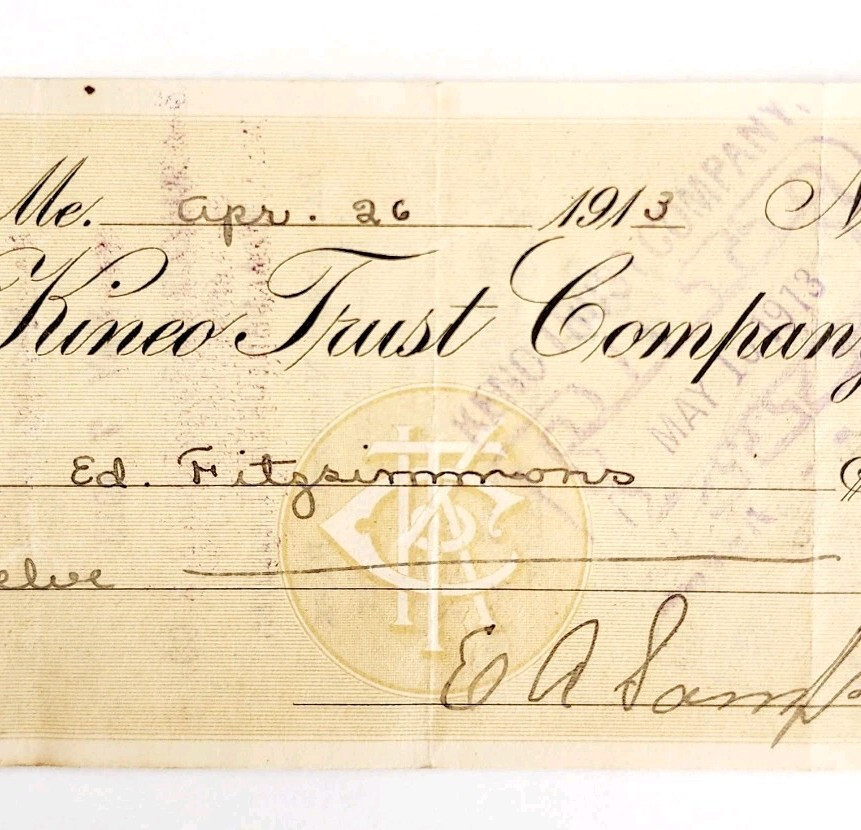 Me. Apr. 26 1913 N
Kineo Trust Company
Ed. Fitzsimmons $
elve
E A Samp
KINEO TRUST COMPANY,
MAY 1 1913